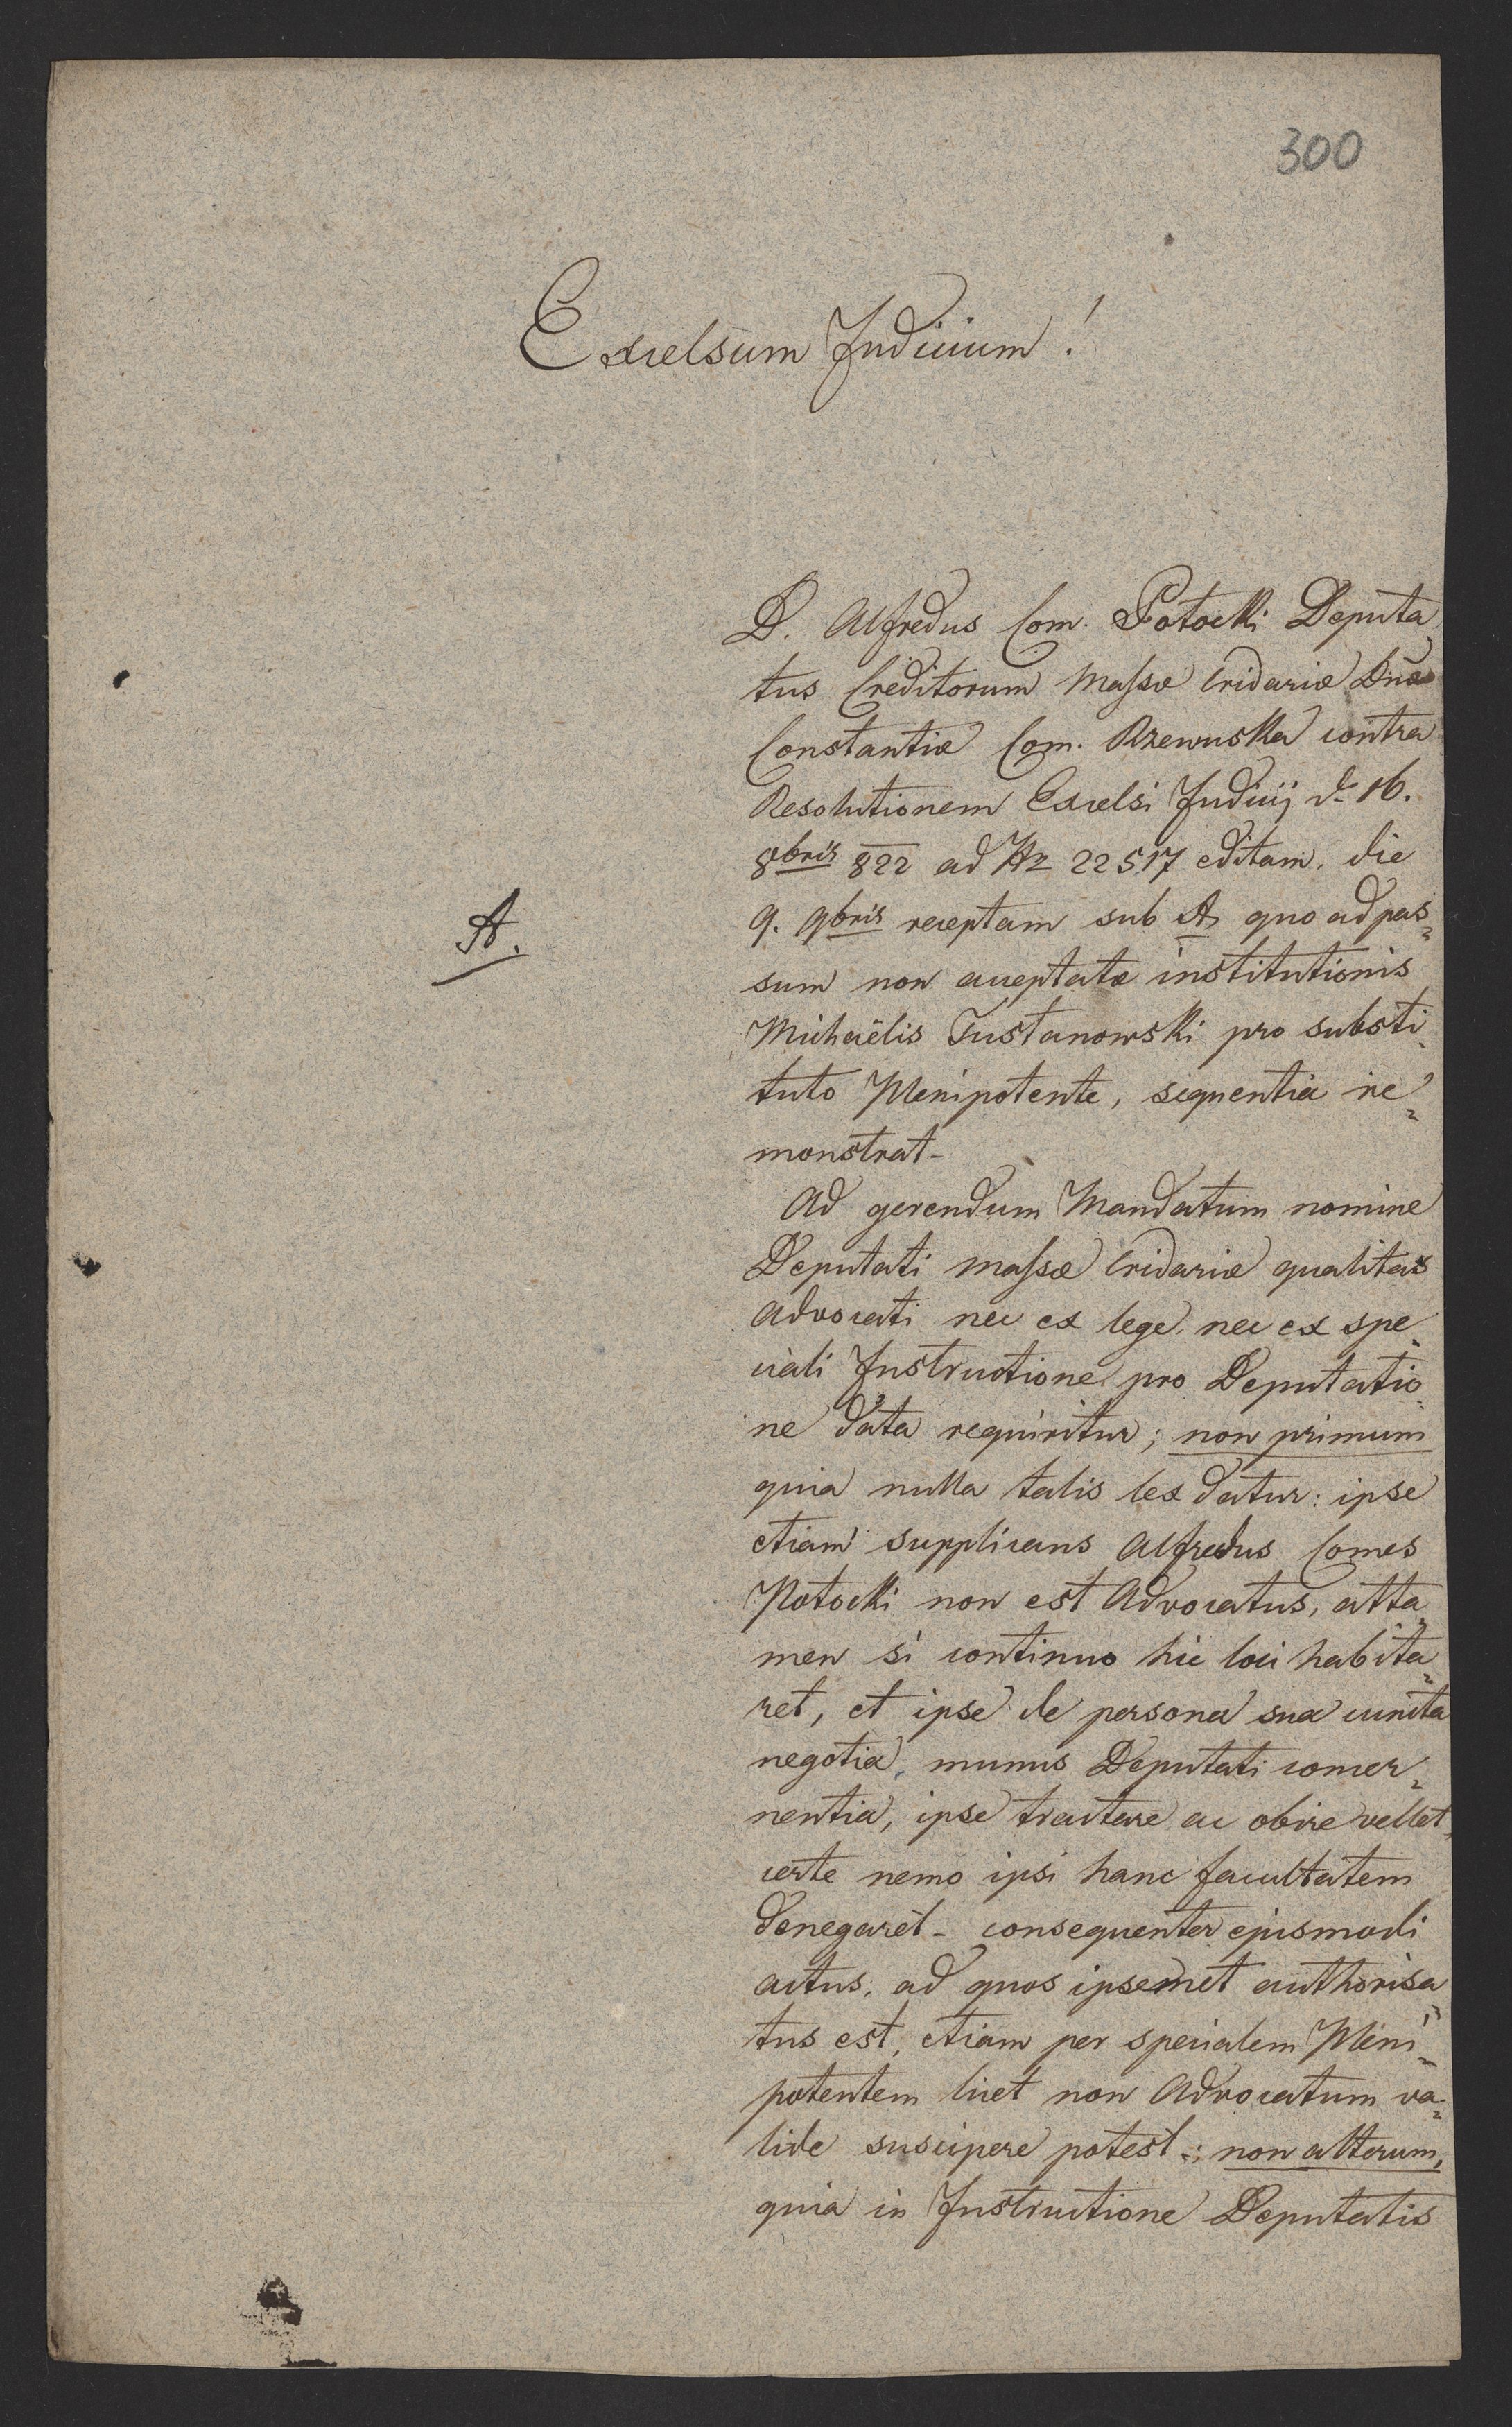 300
Excelsum Judicium!
D. Alfredus Com. Potocki Deputa
tus Creditorum Massæ Cridariæ Dnæ
Constantiæ Com. Rzewuska contra
Resolutionem Excelsi Judicij d. 16.
8bris 822 ad Nr 22517 editam, die
A.
9. 9bris receptam sub A, quo ad pas=
sum non acceptatæ institutionis
Michaëlis Tustanowski pro substi=
tuto Plenipotente, sequentia re=
monstrat-
Ad gerendum Mandatum nomine
Deputati massæ Cridariæ qualitas
Advocati nec ex lege, nec ex spe=
ciali Instructione pro Deputatio=
ne data requiritur; non primum
quia nulla talis lex datur: ipse
etiam supplicans Alfredus Comes
Potocki non est Advocatus, atta=
men si continuo hic loci habita=
ret, et ipse de persona sua cuncta
negotia, munus Deputati concer=
nentia, ipse tractare ac obire vellet,
certe nemo ipsi hanc facultatem
denegaret- consequenter ejusmodi
actus, ad quos ipsemet authorisa=
tus est, etiam per specialem Pleni=
potentem licet non Advocatum va=
lide suscipere potest; non alterum,
quia in Instructione Deputatis